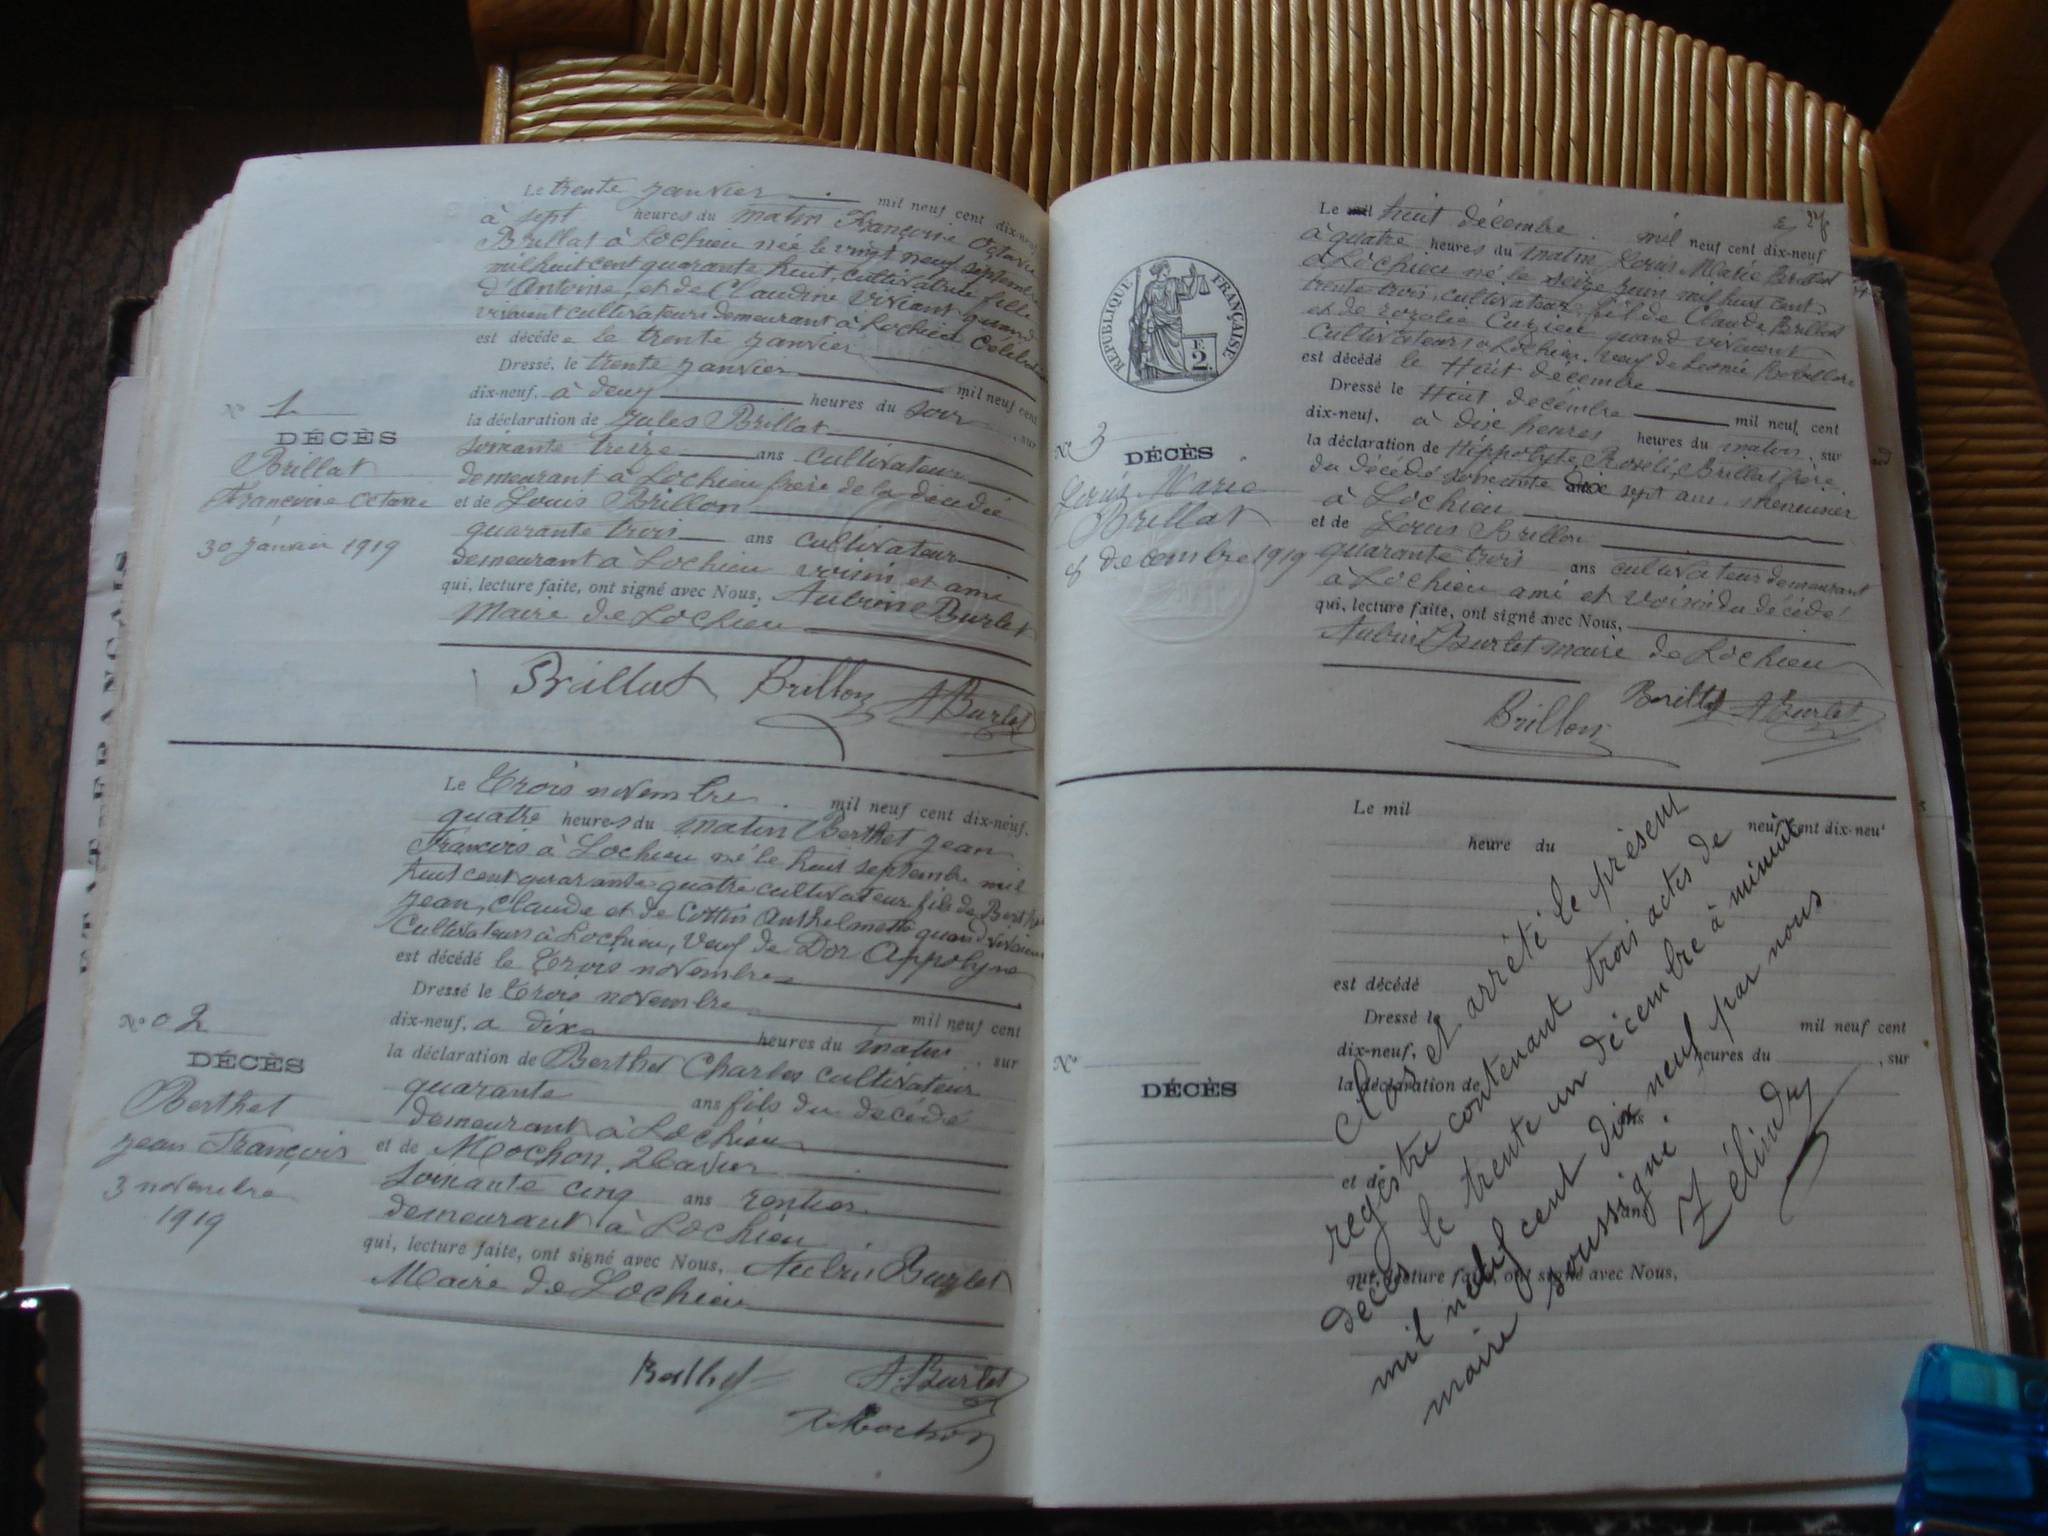 Le trente janvier mil neuf cent dix-neuf
à sept heures du matin Françoise Octavie
Brillat à Lochieu née le vingt neuf septembre
mil huit cent quarante huit, cultivatrice fille
d'Antoine et de Claudine Viviant quand
vivaient cultivateurs demeurant à Lochieu Célibataire
est décédée le trente janvier
Dressé, le trente janvier mil neuf cent
dix-neuf, à deux heures du soir, sur
la déclaration de Jules Brillat
soixante treize ans cultivateur
demeurant à Lochieu frère de la décédée
et de Louis Brillon
quarante trois ans cultivateur
demeurant à Lochieu voisin et ami
qui, lecture faite, ont signé avec Nous, Aubrin Burlet
Maire de Lochieu
Brillat Brillon A Burlet
N° 1
DÉCÈS
Brillat
Françoise Octavie
30 janvier 1919
Le Trois novembre mil neuf cent dix-neuf,
quatre heures du matin Berthet Jean
François à Lochieu né le huit septembre mil
huit cent quarante quatre cultivateur fils de Berthet
Jean, Claude et de Cottin Anthelmette quand vivaient
Cultivateurs à Lochieu, Veuf de Dor Appolyne
est décédé le Trois novembre
Dressé le Trois novembre mil neuf cent
dix-neuf, a dix heures du matin, sur
la déclaration de Berthet Charles cultivateur
quarante ans fils du decédé
demeurant à Lochieu
et de Mochon, Xavier
soixante cinq ans rentier
demeurant à Lochieu
qui, lecture faite, ont signé avec Nous, Aubrin Burlet
Maire de Lochieu
Berthet A. Burlet
X. Mochon
N° 2
DÉCÈS
Berthet
Jean François
3 novembre
1919
27
Le mil huit décembre mil neuf cent dix-neuf
à quatre heures du matin Louis Marie Brillat
à Lochieu né le seize juin mil huit cent
trente trois, cultivateur fils de Claude Brillat
et de rosalie quand vivaient
Cultivateurs à Lochieu. veuf de Leonie
est décédé le Huit decembre
Dressé le Huit decembre mil neuf cent
dix-neuf, à dix heures heures du matin, sur
la déclaration de Hippolyte, Brillat frère
du décédé soixante sept ans, menuisier
à Lochieu
et de Louis Brillon
quarante trois ans cultivateur demeurant
à Lochieu ami et voisin du décédé
qui, lecture faite, ont signé avec Nous,
Aubrin Burlet maire de Lochieu
Brillon Brillat A Burlet
RÉPUBLIQUE FRANÇAISE
F.
2.
N° 3
DÉCÈS
Louis Marie
Brillat
8 decembre 1919
Le mil neuf cent dix-neuf
heure du
est décédé
Dressé le mil neuf cent
dix-neuf, heures du , sur
la déclaration de
ans
et de
ans
qui, lecture faite, ont signé avec Nous,
N°
DÉCÈS
Clos et arrêté le présent
registre contenant trois actes de
décès le trente un décembre à minuit
mil neuf cent dix neuf par nous
maire soussigné.
Zélindy